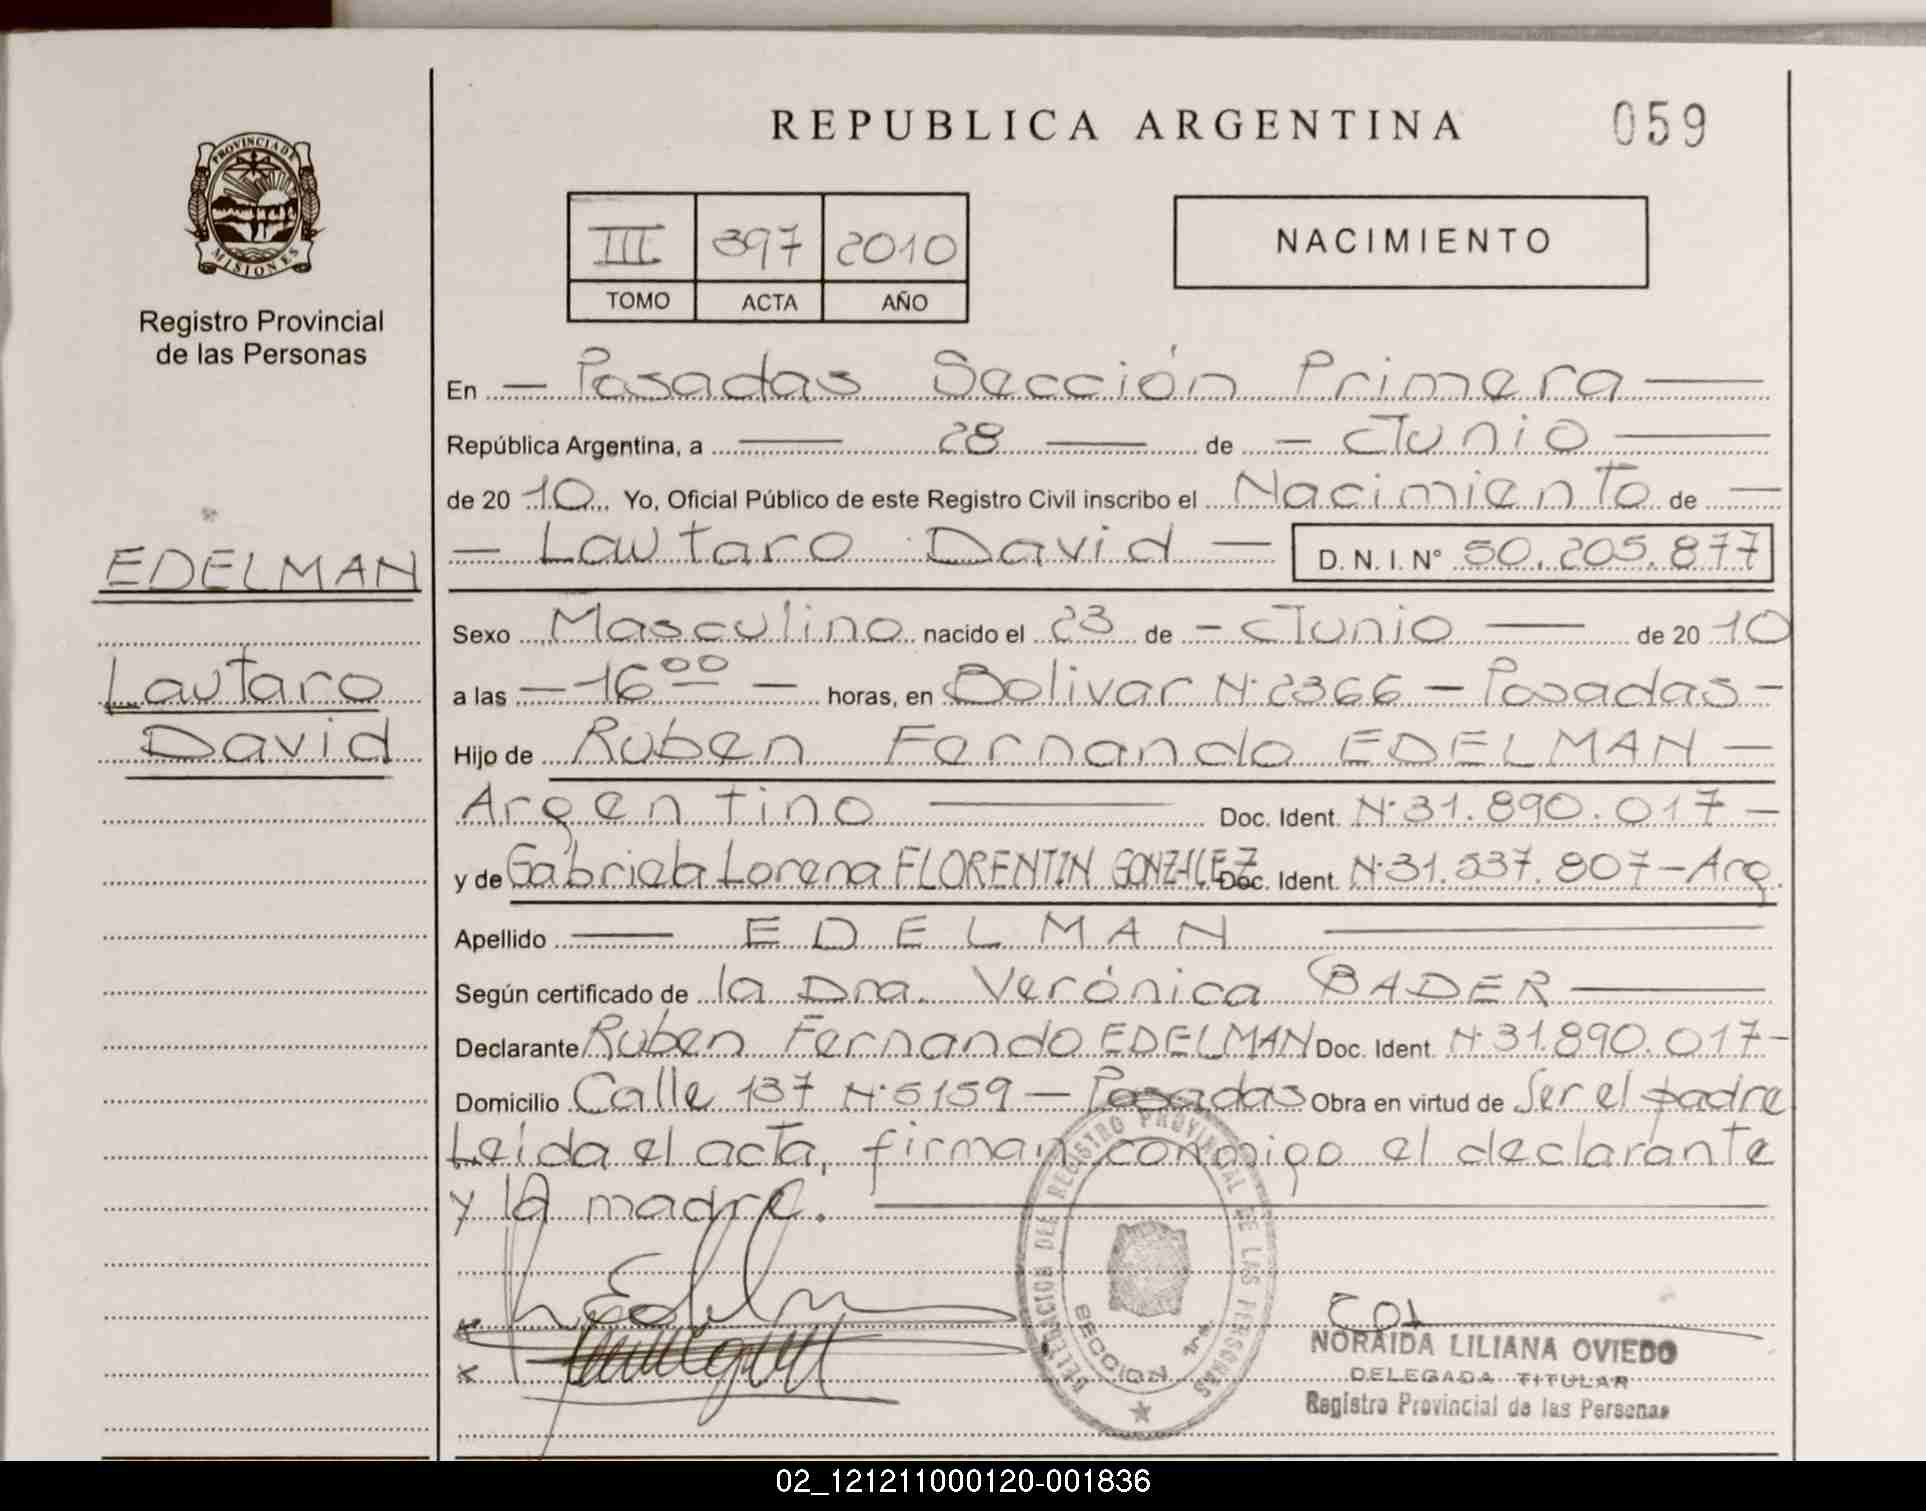 REPUBLICA ARGENTINA
059
PROVINCIA DE
MISIONES
Registro Provincial
de las Personas
III 397 2010
TOMO ACTA AÑO
NACIMIENTO
EDELMAN
Lautaro
David
En — Posadas Sección Primera —
República Argentina, a — 28 — de — Junio —
de 20 10 Yo, Oficial Público de este Registro Civil inscribo el Nacimiento de —
— Lautaro David — D. N. I. N° 50.205.877
Sexo Masculino nacido el 23 de — Junio — de 20 10
a las — 16 00 — horas, en Bolivar N° 2366 — Posadas —
Hijo de Ruben Fernando EDELMAN —
Argentino — Doc. Ident. N° 31.890.017 —
y de Gabriela Lorena FLORENTIN GONZALEZ Doc. Ident. N° 31.537.807 — Arg.
Apellido — EDELMAN —
Según certificado de la Dra. Verónica BADER —
Declarante Ruben Fernando EDELMAN Doc. Ident. N° 31.890.017 —
Domicilio Calle 137 N° 5159 — Posadas Obra en virtud de Ser el padre
Leida el acta, firman conmigo el declarante
y la madre. —
DELEGACION DEL REGISTRO PROVINCIAL DE LAS PERSONAS
SECCION 1ra
NORAIDA LILIANA OVIEDO
DELEGADA TITULAR
Registro Provincial de las Personas
02_121211000120-001836